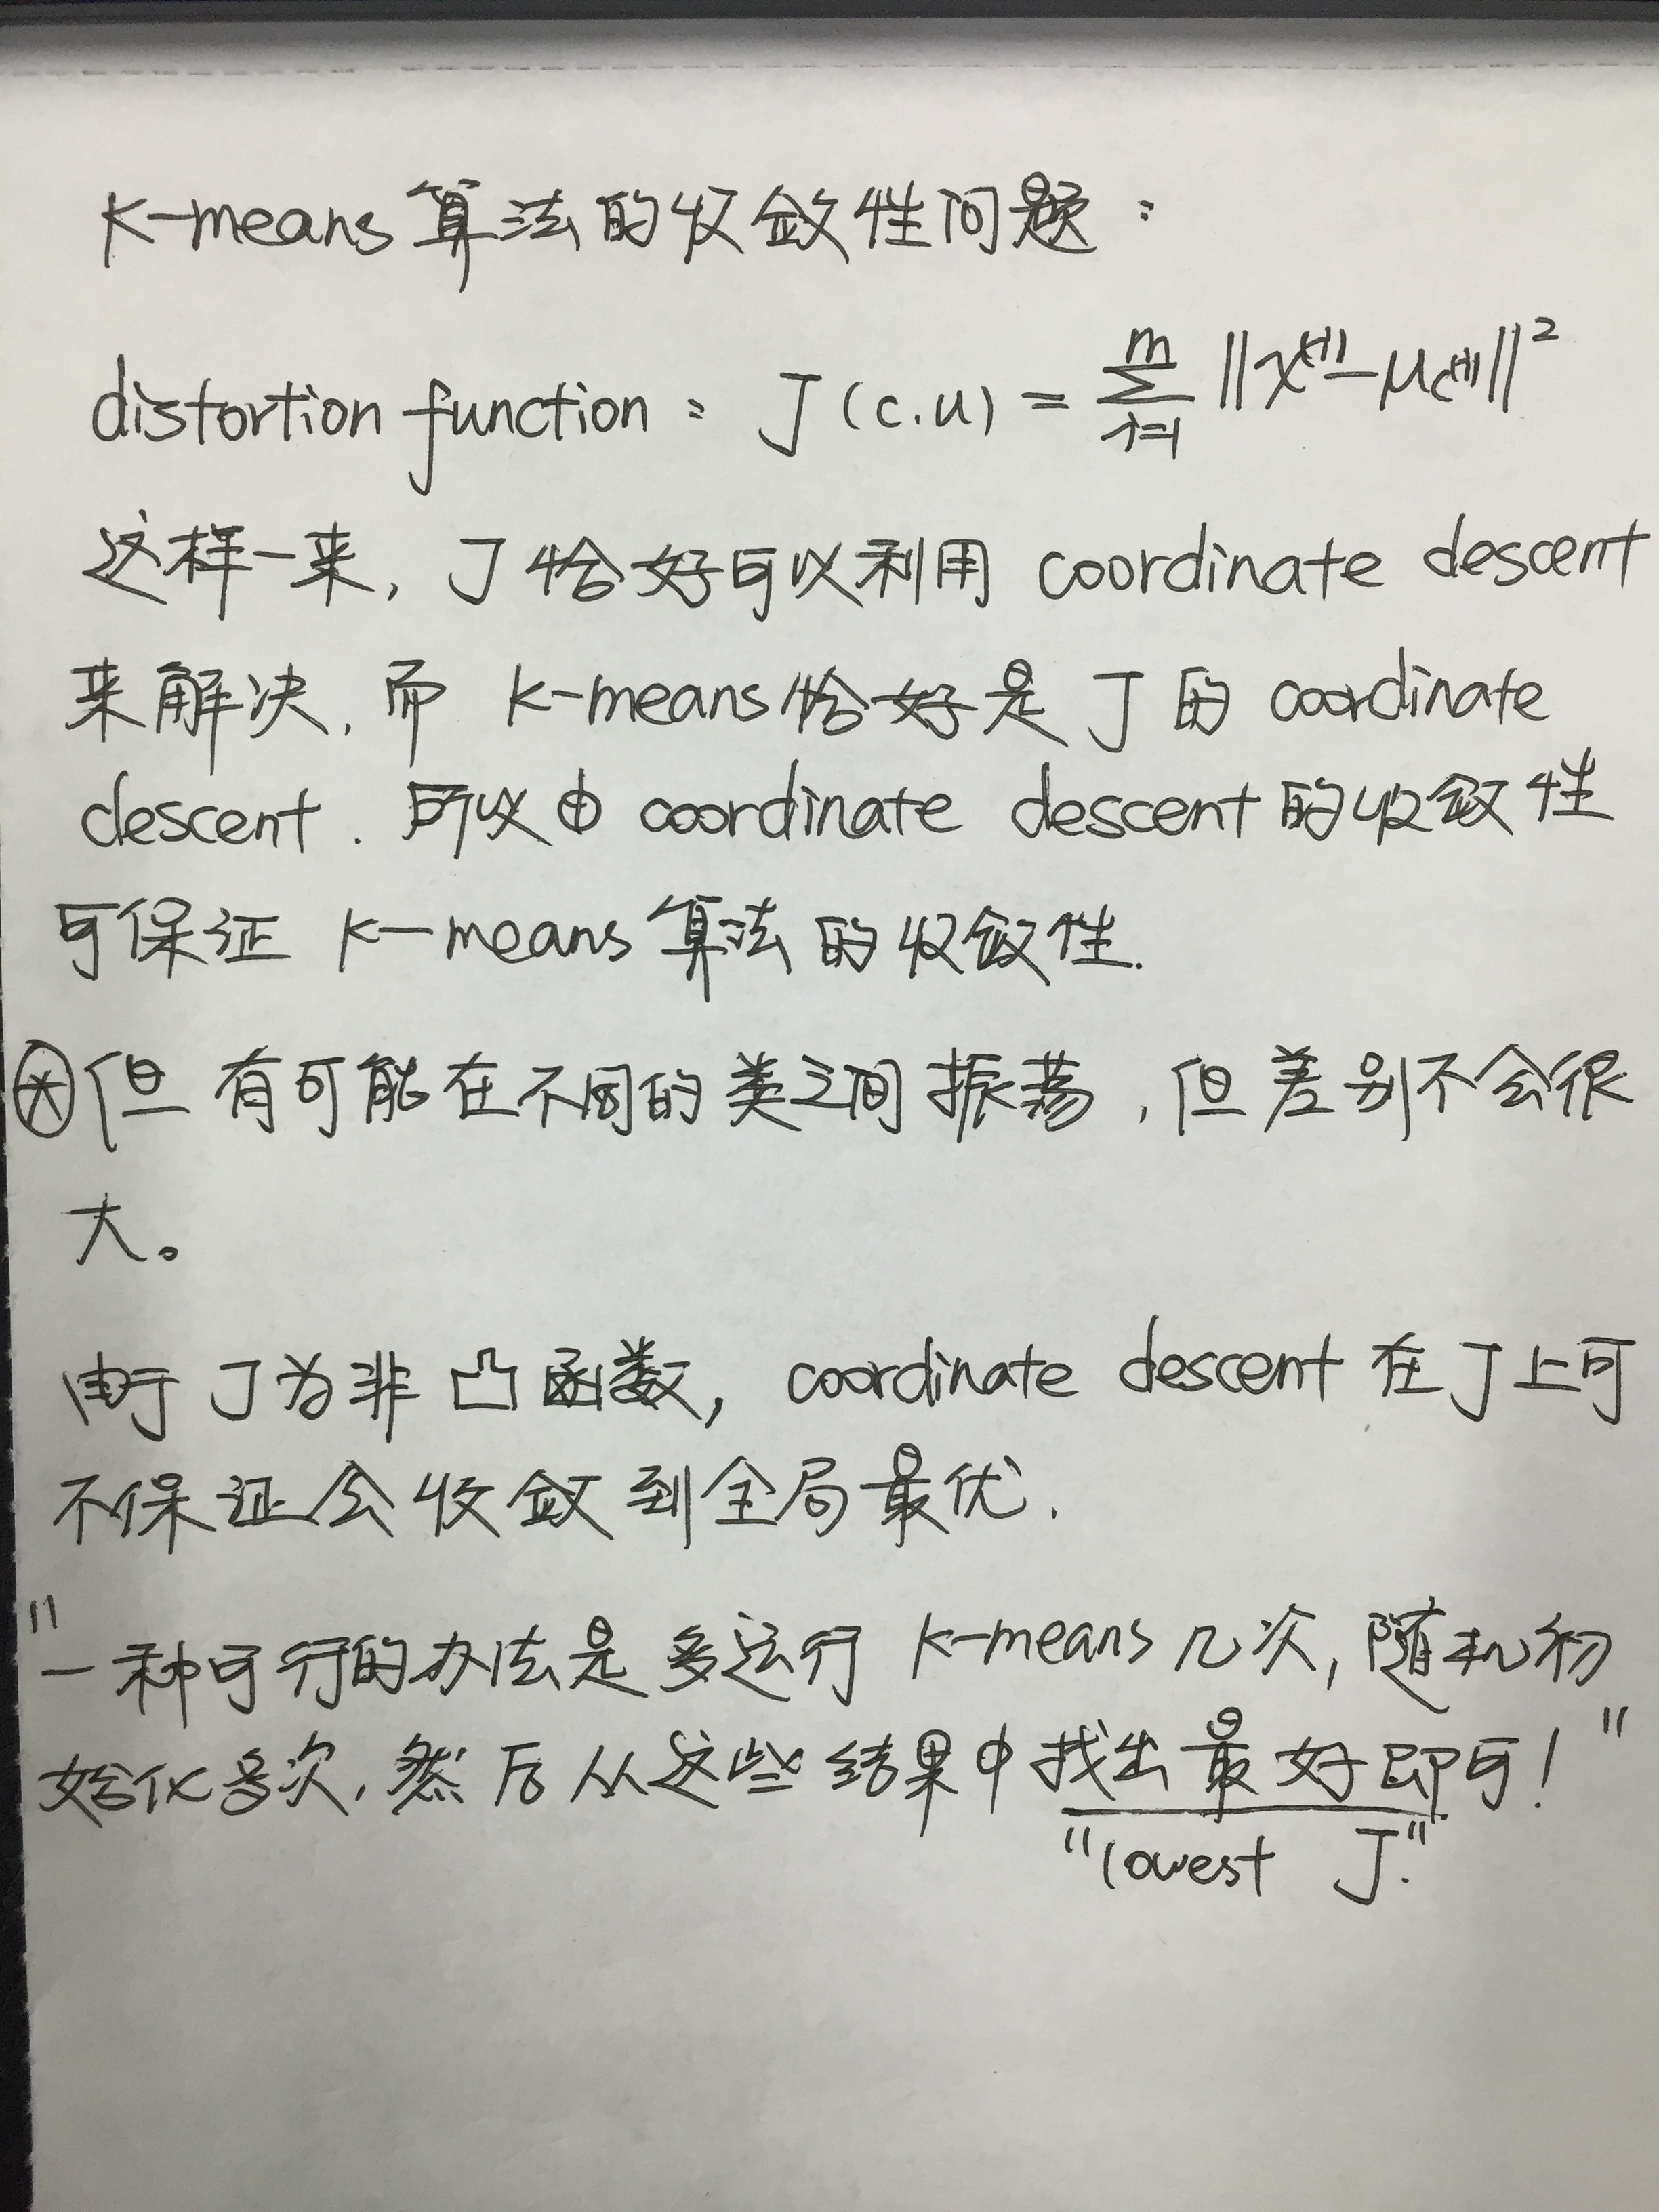 K-means算法的收敛性问题：
distortion function： J(c.u) = \sum_{i=1}^{m} ||x^{(i)}-μ_{c^{(i)}}||^2
这样一来, J 恰好可以利用 coordinate descent
来解决, 而 K-means恰好是 J 的 coordinate
descent. 所以由 coordinate descent的收敛性
可保证 K-means算法的收敛性.
⊛但 有可能在不同的类之间振荡, 但差别不会很
大。
由于J为非凸函数, coordinate descent 在J上可
不保证会收敛到全局最优.
"一种可行的办法是多运行 K-means几次, 随机初
始化多次, 然后从这些结果中找出最好即可!"
"lowest J."